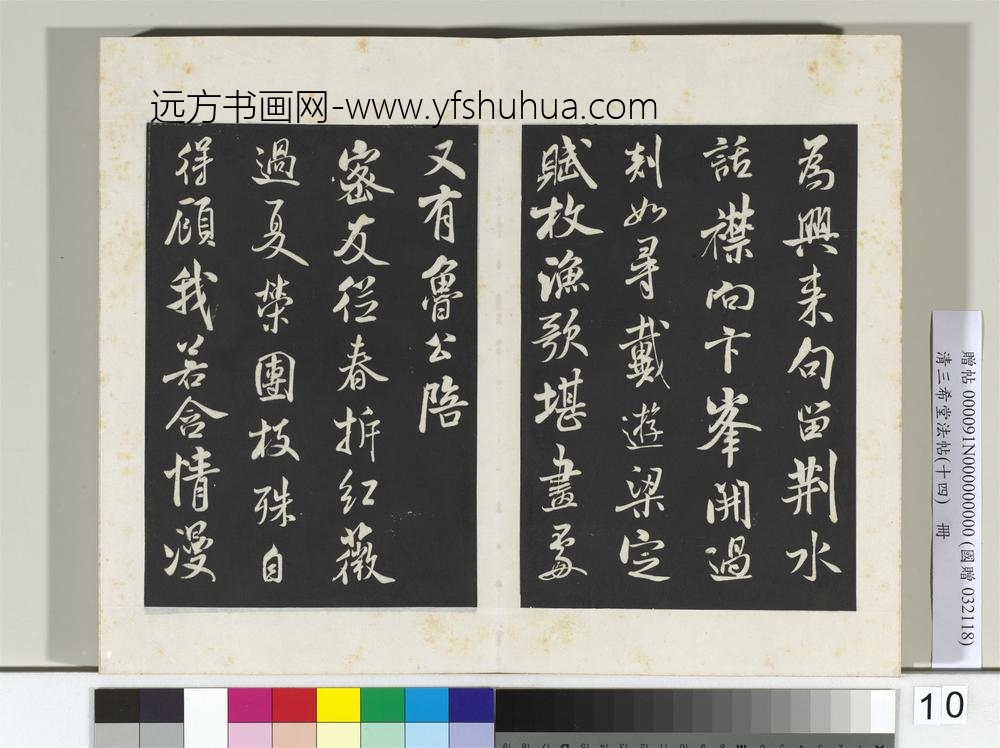 远方书画网-www.yfshuhua.com
為興来句留荆水
話襟向卞峯開過
剡如尋戴遊梁定
賦枚漁歌堪畫處
又有魯公陪
密友從春拆紅薇
過夏榮團枝殊自
得顧我若含情漫
贈帖 0000091N000000000 (國贈 032118)
清三希堂法帖(十四) 冊
10